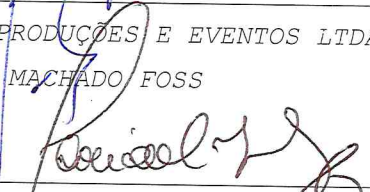 PRODUÇÕES E EVENTOS LTDA
MACHADO FOSS